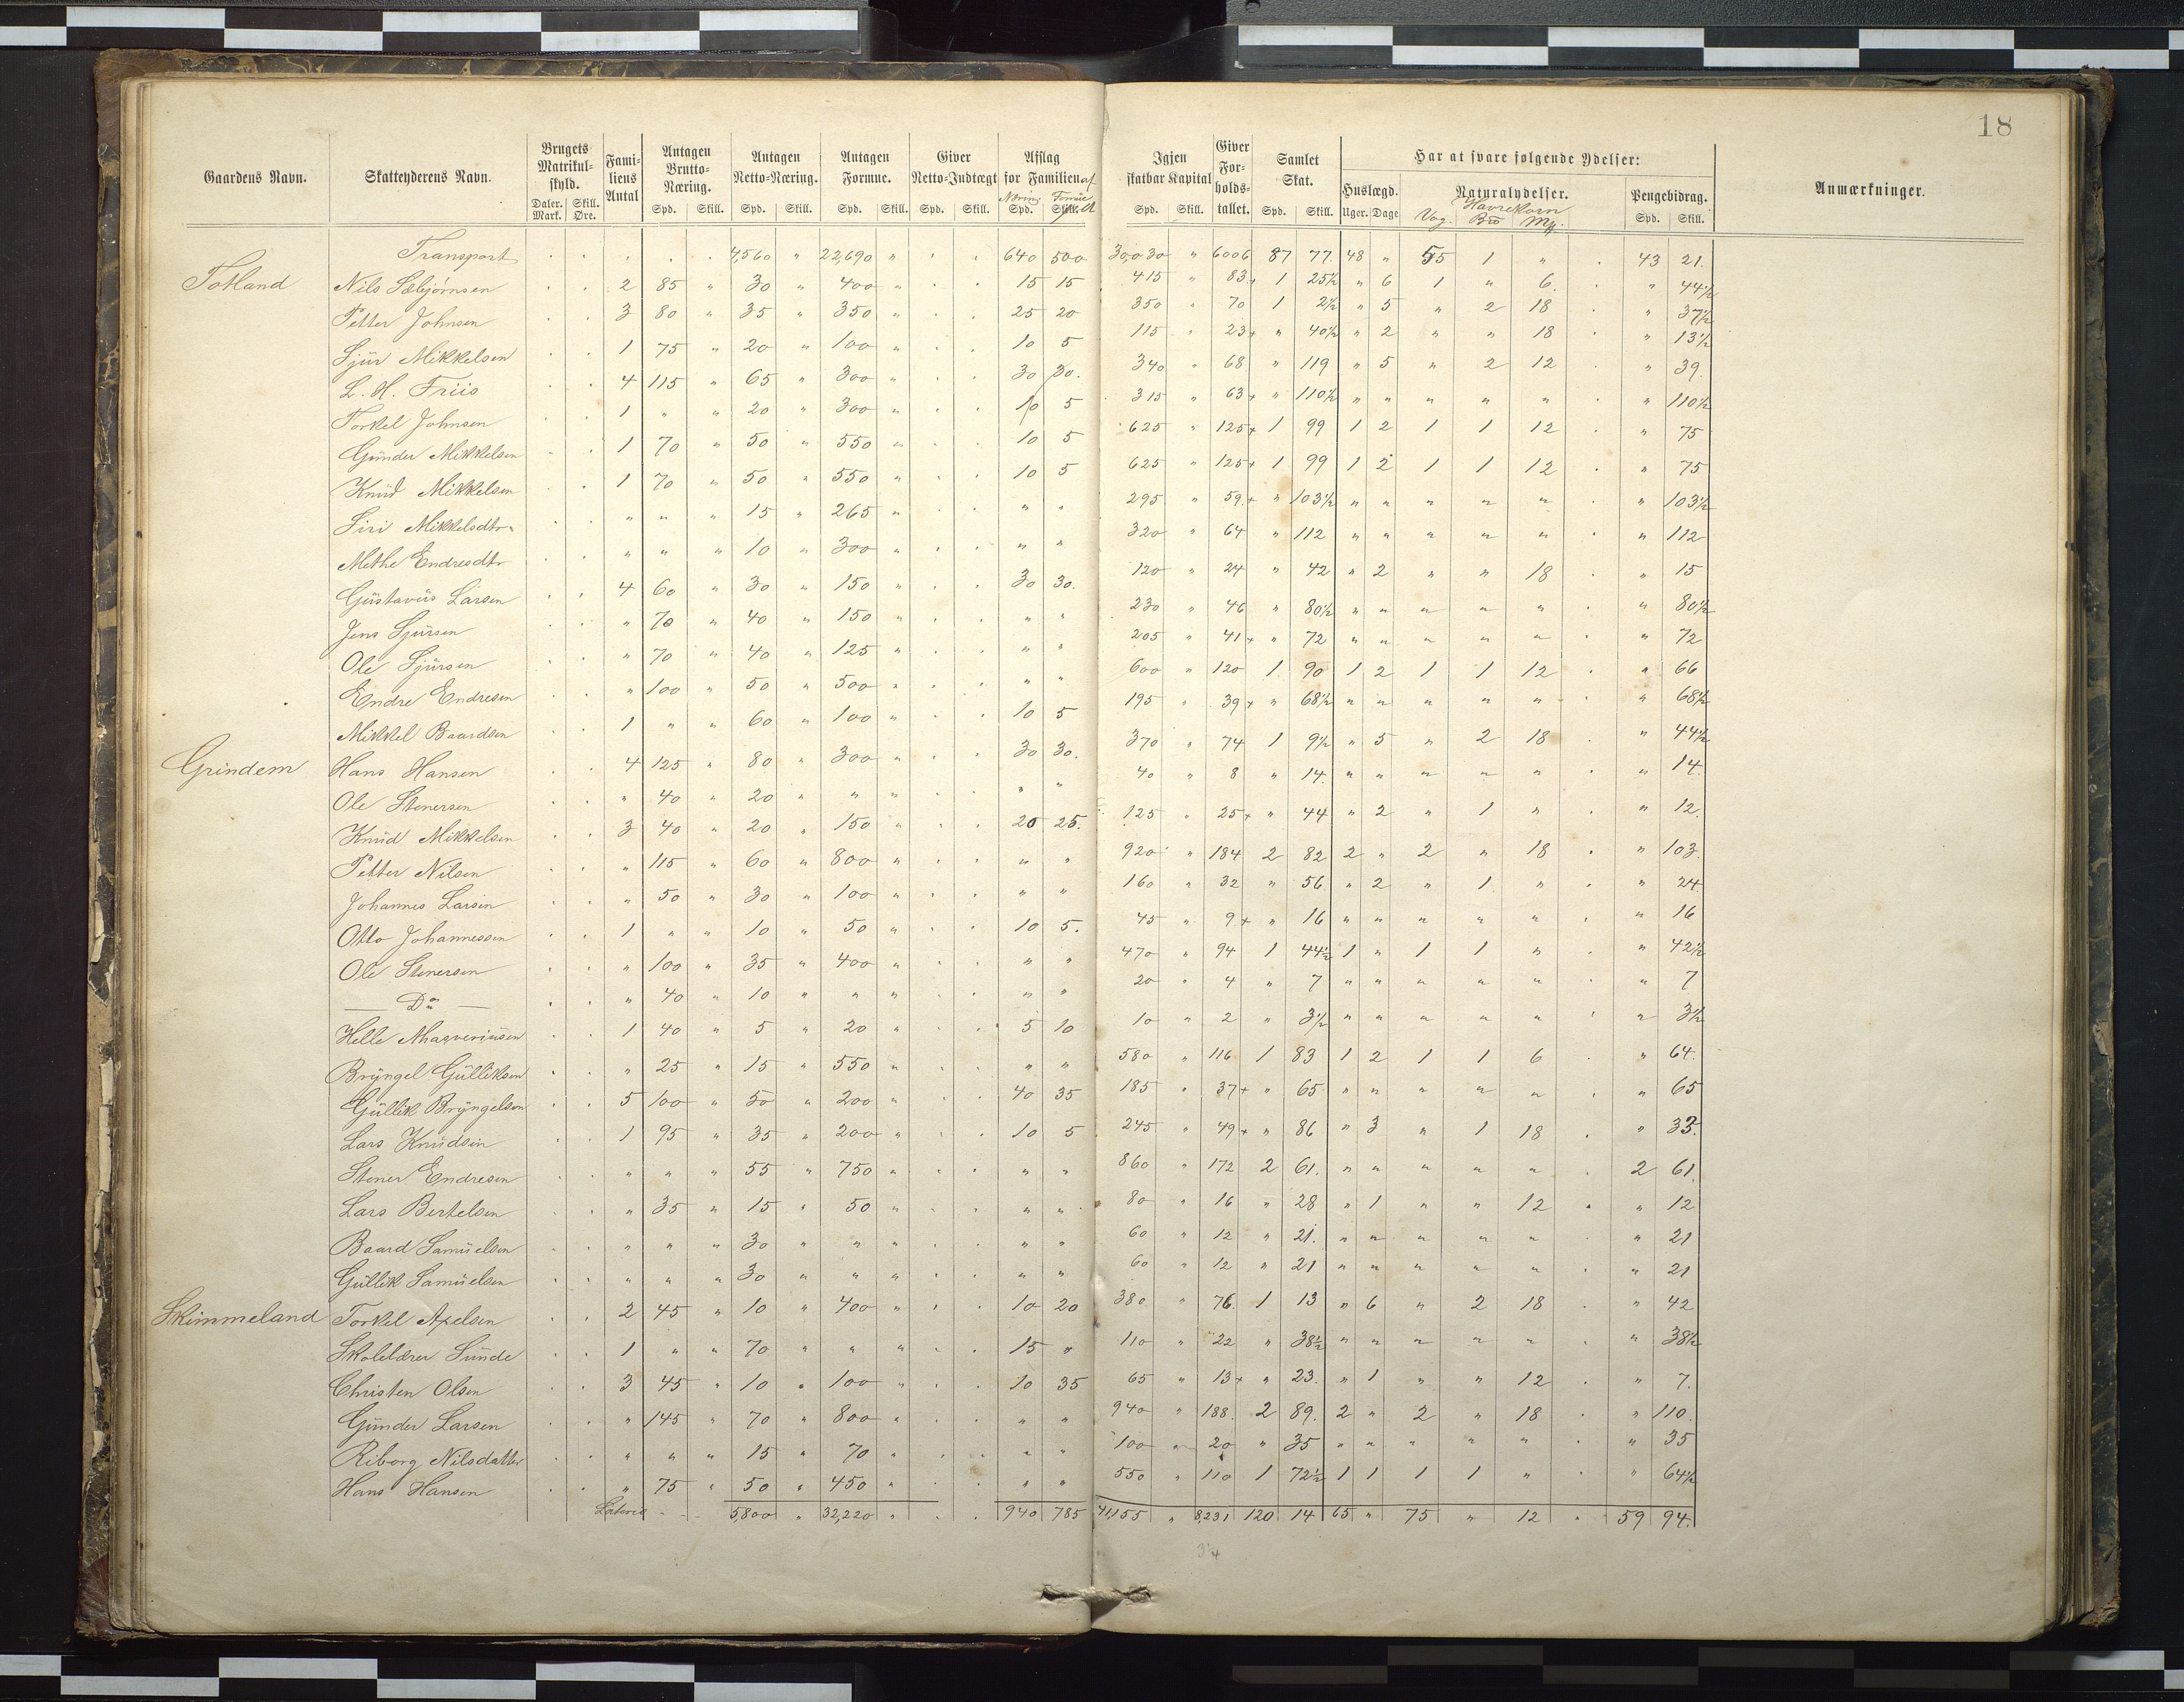 18
Gaardens Navn. Skatteyderens Navn. Brugets Matrikulskyld. Familiens Antal Antagen Brutto-Næring. Antagen Netto-Næring. Antagen Formue. Giver Netto-Indtægt Afslag for Familien af Igjen skatbar Kapital Giver Forholdstallet. Samlet Skat. Har at svare følgende Ydelser: Anmærkninger.
Huslægd. Naturalydelser. Pengebidrag.
Daler. Mark. Skill. Øre. Spd. Skill. Spd. Skill. Spd. Skill. Spd. Skill. Næring Spd. Formue Skill. Spd. Skill. Spd. Skill. Uger. Dage Havrekorn Vog. Bd Mk. Spd. Skill.
Transport . . . . . 4,560 " 22,690 " . . 640 500 30,030 " 6006 87 77. 48 " 55 1 " . 43 21.
Totland Nils Sæbjørnsen . . 2 85 " 30 " 400 " . . 15 15 415 " 83+ 1 25½ " 6 1 " 6. . " 44½
Petter Johnsen . . 3 80 " 35 " 350 " . . 25 20 350 " 70 1 2½ " 5 " 2 18 . " 37½
Sjur Mikkelsen . . 1 75 " 20 " 100 " . . 10 5 115 " 23+ " 40½ " 2 " " 18 . " 13½
L. H. Friis . . 4 115 " 65 " 300 " . . 30 30. 340 " 68 " 119 " 5 " 2 12 . " 39.
Torkel Johnsen . . 1 " " 20 " 300 " . . 10 5 315 " 63+ " 110½ " " " " " . " 110½
Gunder Mikkelsen . . 1 70 " 50 " 550 " . . 10 5 625 " 125+ 1 99 1 2 1 1 12 . " 75
Knud Mikkelsen . . 1 70 " 50 " 550 " . . 10 5 625 " 125+ 1 99 1 2 1 1 12 . " 75
Siri Mikkelsdtr. . . " " " 15 " 265 " . . " " 295 " 59+ " 103½ " " " " " . " 103½
Methe Endresdtr . . " " " 10 " 300 " . . " " 320 " 64 " 112 " " " " " . " 112
Gustavus Larsen . . 4 60 " 30 " 150 " . . 30 30. 120 " 24 " 42 " 2 " " 18 . " 15
Jens Sjursen . . " 70 " 40 " 150 " . . " " 230 " 46 " 80½ " " " " " . " 80½
Ole Sjursen . . " 70 " 40 " 125 " . . " " 205 " 41+ " 72 " " " " " . " 72
Endre Endresen . . " 100 " 50 " 500 " . . " " 600 " 120 1 90 1 2 1 1 12 . " 66
Mikkel Baardsen . . 1 " " 60 " 100 " . . 10 5 195 " 39+ " 68½ " " " " " . " 68½
Grindem Hans Hansen . . 4 125 " 80 " 300 " . . 30 30. 370 " 74 1 9½ " 5 " 2 18 . " 44½
Ole Stenersen . . " 40 " 20 " " " . . " " 40 " 8 " 14. " " " " " . " 14.
Knud Mikkelsen . . 3 40 " 20 " 150 " . . 20 25. 125 " 25+ " 44 " 2 " 1 " . " 12.
Petter Nilsen . . " 115 " 60 " 800 " . . " " 920 " 184 2 82 2 " 2 " 18 . " 103.
Johannes Larsen . . " 50 " 30 " 100 " . . " " 160 " 32 " 56 " 2 " 1 " . " 24.
Otto Johannessen . . 1 " " 10 " 50 " . . 10 5. 45 " 9+ " 16 " " " " " . " 16
Ole Stenersen . . " 100 " 35 " 400 " . . " " 470 " 94 1 44½ 1 " 1 1 " . " 42½
— Do — . . " 40 " 10 " " " . . " " 20 " 4 " 7 " " " " " . " 7
Helle . . 1 40 " 5 " 20 " . . 5 10 10 " 2 " 3½ " " " " " . " 3½
Bryngel Gulliksen . . " 25 " 15 " 550 " . . " " 580 " 116 1 83 1 2 1 1 6 . " 64.
Gullik Bryngelsen . . 5 100 " 50 " 200 " . . 40 35 185 " 37+ " 65 " " " " " . " 65
Lars Knudsen . . 1 95 " 35 " 200 " . . 10 5 245 " 49+ " 86 " 3 " 1 18 . " 33.
Stener Endresen . . " " " 55 " 750 " . . " " 860 " 172 2 61. " " " " " . 2 61
Lars Bertelsen . . " 35 " 15 " 50 " . . " " 80 " 16 " 28 " 1 " " 12 . " 12
Baard Samuelsen . . " " " 30 " " " . . " " 60 " 12 " 21. " " " " " . " 21
Gullik Samuelsen . . " " " 30 " " " . . " " 60 " 12 " 21 " " " " " . " 21
Skimmeland Torkel Axelsen . . 2 45 " 10 " 400 " . . 10 20 380 " 76. 1 13 " 6 " 2 18 . " 42
Skolelærer Sunde . . 1 " " 70 " " " . . 15 " 110 " 22 " 38½ " " " " " . " 38½
Christen Olsen . . 3 45 " 10 " 100 " . . 10 35 65 " 13+ " 23. " 1 " " 12 . " 7.
Gunder Larsen . . " 145 " 70 " 800 " . . " " 940 " 188. 2 89. 2 " 2 " 18 . " 110.
Riborg Nilsdatter . . " " " 15 " 70 " . . " " 100 " 20 " 35 " " " " " . " 35
Hans Hansen . . " 75 " 50 " 450 " . . " " 550 " 110 1 72½ 1 1 1 1 " . " 64½
Lateris 5,800 " 32,220 " . . 940 785 41,155 " 8,231 120 14 65 " 75 " 12 . 59 94.